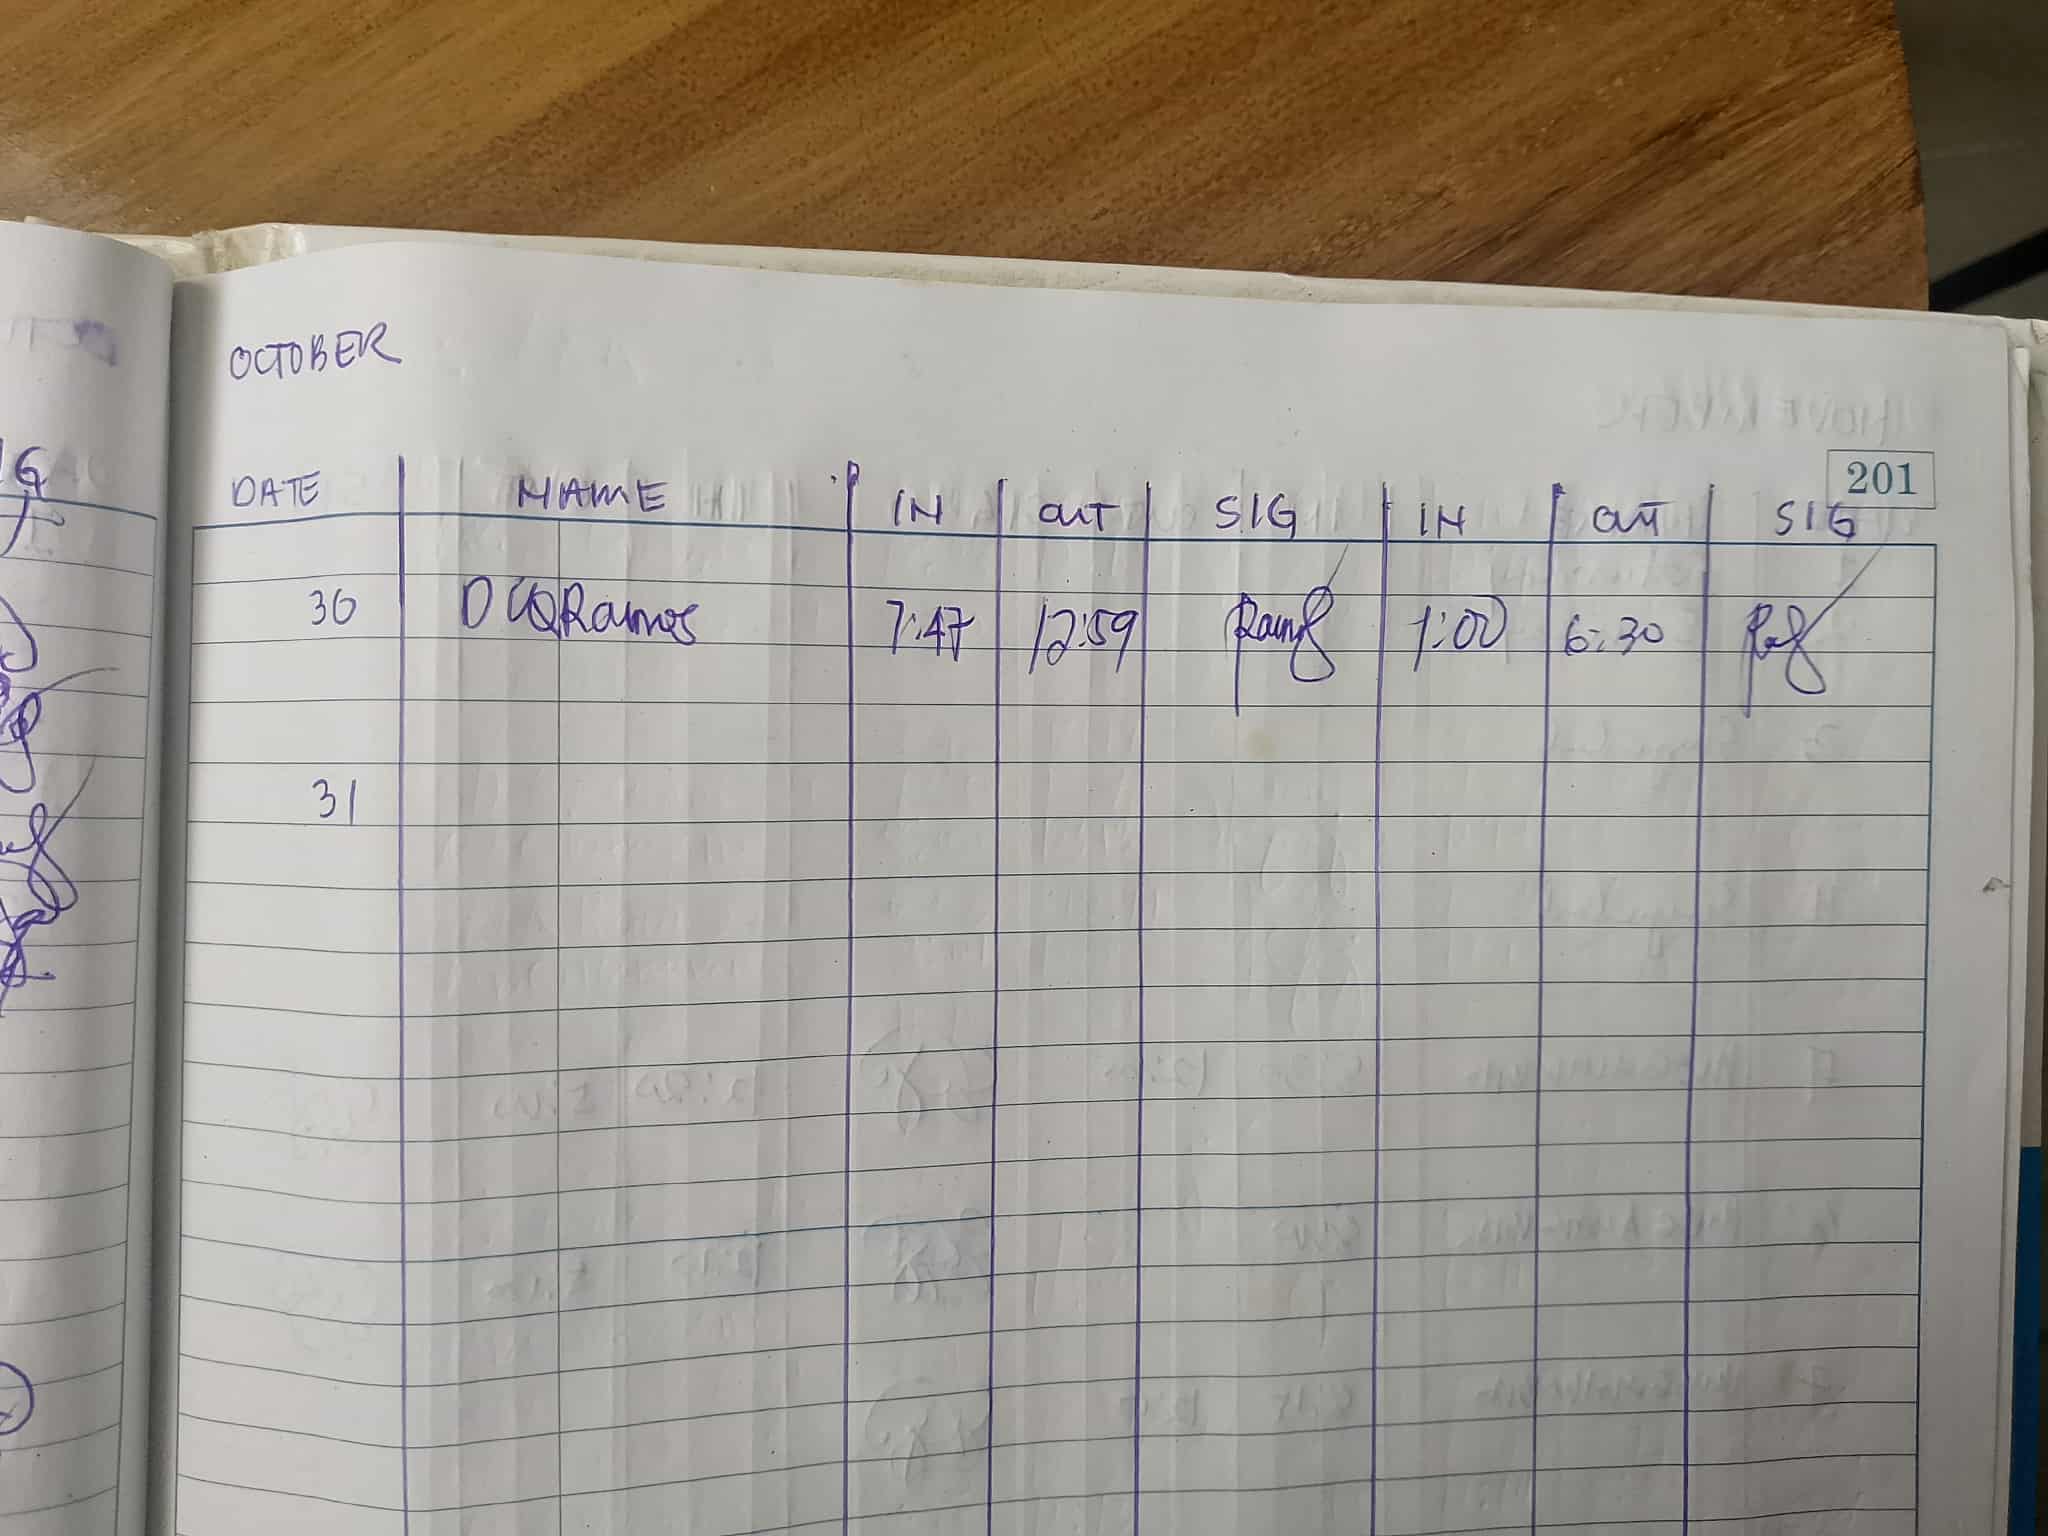 OCTOBER
201
DATE NAME IN OUT SIG IN OUT SIG
30 DCQRamos 7:47 12:59 1:00 6:30
31